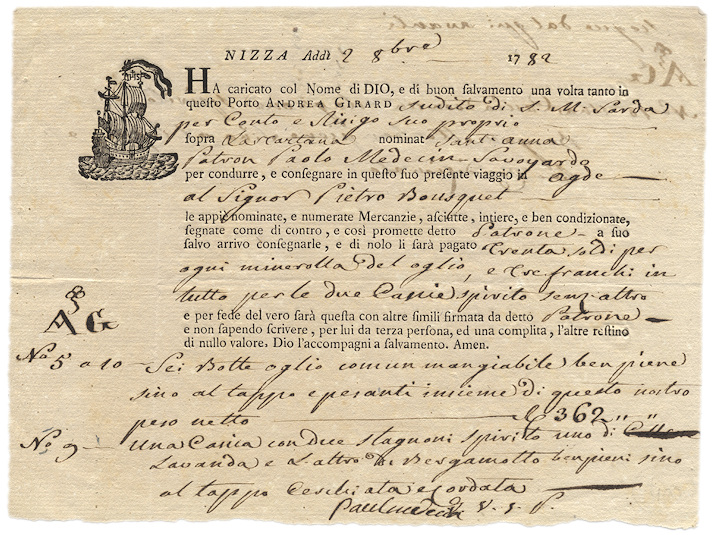 NIZZA Addì 2 8bre 1782
HA caricato col Nome di DIO, e di buon salvamento una volta tanto in
questo Porto ANDREA GIRARD sudito di S. M. Sarda
per Conto e Risigo suo proprio
sopra La Tartana nominat Sant'anna
Patron Paolo Medecin Savoyardo
per condurre, e consegnare in questo suo presente viaggio in agde
al Signor Pietro Bousquet
le appiè nominate, e numerate Mercanzie, asciutte, intiere, e ben condizionate,
segnate come di contro, e così promette detto Patrone a suo
salvo arrivo consegnarle, e di nolo li sarà pagato trenta soldi per
ogni minerolla del oglio, e tre franchi in
tutto per le due Cassie spirito senz altro
e per fede del vero sarà questa con altre simili firmata da detto Patrone
e non sapendo scrivere, per lui da terza persona, ed una complita, l'altre restino
di nullo valore. Dio l'accompagni a salvamento. Amen.
AG
No. 5 a 10 Sei Botte oglio comun mangiabile ben piene
sino al tappo e pesanti insieme di questo nostro
peso netto 362 " "
No. 9 una Cassia con due stagnoni spirito uno di
Lavanda e L'altro di Bergamotto ben pieni sino
al tappo Cerchiata e cordata